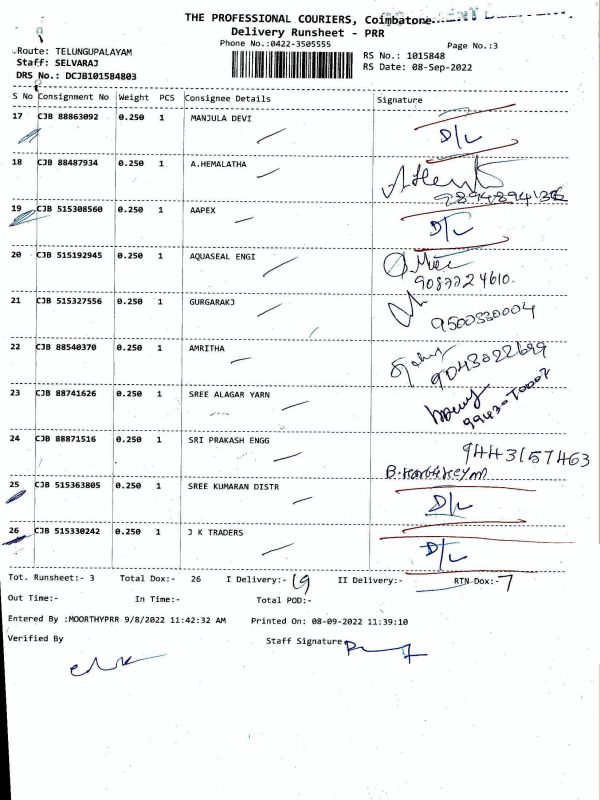 THE PROFESSIONAL COURIERS, Coimbatone
Delivery Runsheet - PRR
Phone No.:0422-3505555
Page No.:3
Route: TELUNGUPALAYAM
RS No.: 1015848
Staff: SELVARAJ
RS Date: 08-Sep-2022
DRS No.: DCJB101584803
S No Consignment No Weight PCS Consignee Details Signature
17 CJB 88863092 0.250 1 MANJULA DEVI D/L
18 CJB 88487934 0.250 1 A.HEMALATHA
19 CJB 515308560 0.250 1 AAPEX D/L
20 CJB 515192945 0.250 1 AQUASEAL ENGI
9087724610.
21 CJB 515327556 0.250 1 GURGARAKJ
9500330004
22 CJB 88540370 0.250 1 AMRITHA
9043022699
23 CJB 88741626 0.250 1 SREE ALAGAR YARN
24 CJB 88871516 0.250 1 SRI PRAKASH ENGG
9443157463
25 CJB 515363805 0.250 1 SREE KUMARAN DISTR D/L
26 CJB 515330242 0.250 1 J K TRADERS D/L
Tot. Runsheet:- 3 Total Dox:- 26 I Delivery:- 19 II Delivery:- RTN Dox:- 7
Out Time:- In Time:- Total POD:-
Entered By :MOORTHYPRR 9/8/2022 11:42:32 AM Printed On: 08-09-2022 11:39:10
Verified By Staff Signature